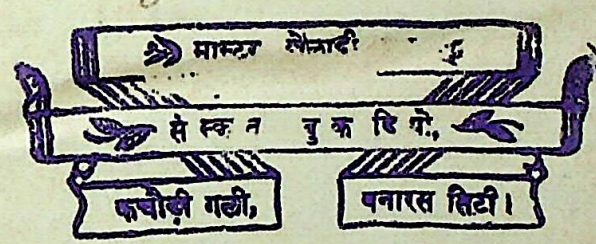 मास्टर खेलाड़ी
संस्कृत बुकडिपो,
कचौड़ी गली, बनारस सिटी।